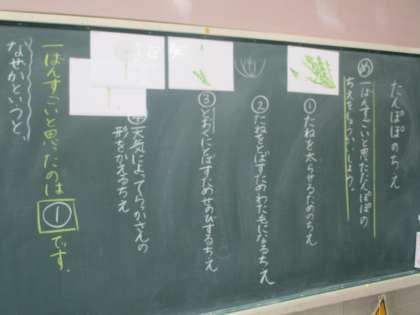 たんぽぽのちえ
め 一ばんすごいと思ったたんぽぽの
ちえをしょうかいしよう。
① たねを太らせるためのちえ
② たねをとばすためわた毛になるちえ
③ とおくにとばすためせのびするちえ
④ 天気によってらっかさんの
形をかえるちえ
一ばんすごいと思ったのは ① です。
なぜかというと、